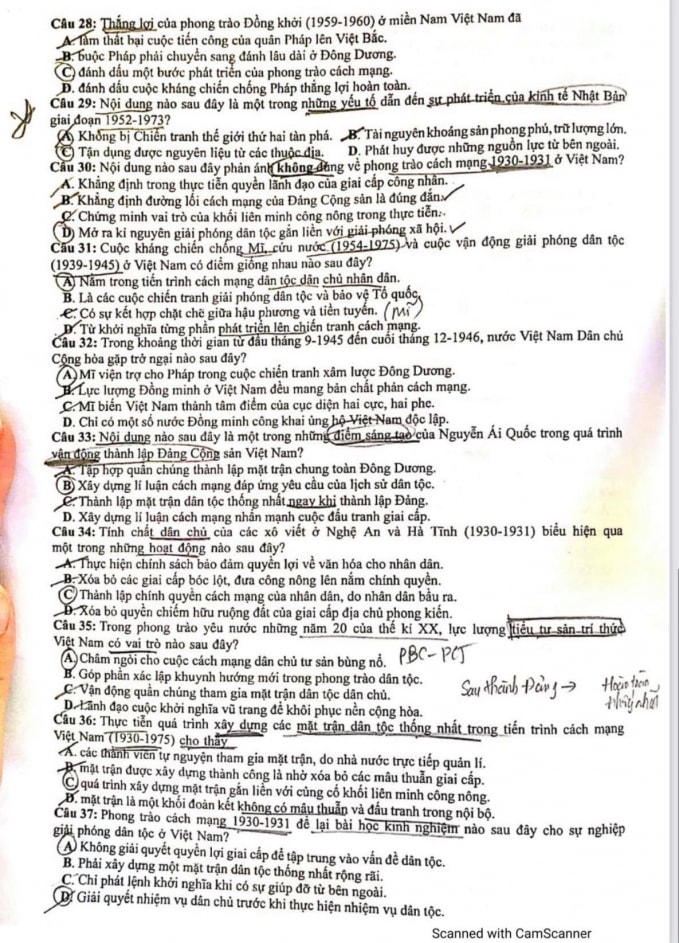 Câu 28: Thắng lợi của phong trào Đồng khởi (1959-1960) ở miền Nam Việt Nam đã
A. làm thất bại cuộc tiến công của quân Pháp lên Việt Bắc.
B. buộc Pháp phải chuyển sang đánh lâu dài ở Đông Dương.
C. đánh dấu một bước phát triển của phong trào cách mạng.
D. đánh dấu cuộc kháng chiến chống Pháp thắng lợi hoàn toàn.
Câu 29: Nội dung nào sau đây là một trong những yếu tố dẫn đến sự phát triển của kinh tế Nhật Bản
giai đoạn 1952-1973?
A. Không bị Chiến tranh thế giới thứ hai tàn phá. B. Tài nguyên khoáng sản phong phú, trữ lượng lớn.
C. Tận dụng được nguyên liệu từ các thuộc địa. D. Phát huy được những nguồn lực từ bên ngoài.
Câu 30: Nội dung nào sau đây phản ánh không đúng về phong trào cách mạng 1930-1931 ở Việt Nam?
A. Khẳng định trong thực tiễn quyền lãnh đạo của giai cấp công nhân.
B. Khẳng định đường lối cách mạng của Đảng Cộng sản là đúng đắn.
C. Chứng minh vai trò của khối liên minh công nông trong thực tiễn.
D. Mở ra kỉ nguyên giải phóng dân tộc gắn liền với giải phóng xã hội.
Câu 31: Cuộc kháng chiến chống Mĩ, cứu nước (1954-1975) và cuộc vận động giải phóng dân tộc
(1939-1945) ở Việt Nam có điểm giống nhau nào sau đây?
A. Nằm trong tiến trình cách mạng dân tộc dân chủ nhân dân.
B. Là các cuộc chiến tranh giải phóng dân tộc và bảo vệ Tổ quốc.
C. Có sự kết hợp chặt chẽ giữa hậu phương và tiền tuyến. (Mĩ)
D. Từ khởi nghĩa từng phần phát triển lên chiến tranh cách mạng.
Câu 32: Trong khoảng thời gian từ đầu tháng 9-1945 đến cuối tháng 12-1946, nước Việt Nam Dân chủ
Cộng hòa gặp trở ngại nào sau đây?
A. Mĩ viện trợ cho Pháp trong cuộc chiến tranh xâm lược Đông Dương.
B. Lực lượng Đồng minh ở Việt Nam đều mang bản chất phản cách mạng.
C. Mĩ biến Việt Nam thành tâm điểm của cục diện hai cực, hai phe.
D. Chỉ có một số nước Đồng minh công khai ủng hộ Việt Nam độc lập.
Câu 33: Nội dung nào sau đây là một trong những điểm sáng tạo của Nguyễn Ái Quốc trong quá trình
vận động thành lập Đảng Cộng sản Việt Nam?
A. Tập hợp quần chúng thành lập mặt trận chung toàn Đông Dương.
B. Xây dựng lí luận cách mạng đáp ứng yêu cầu của lịch sử dân tộc.
C. Thành lập mặt trận dân tộc thống nhất ngay khi thành lập Đảng.
D. Xây dựng lí luận cách mạng nhấn mạnh cuộc đấu tranh giai cấp.
Câu 34: Tính chất dân chủ của các xô viết ở Nghệ An và Hà Tĩnh (1930-1931) biểu hiện qua
một trong những hoạt động nào sau đây?
A. Thực hiện chính sách bảo đảm quyền lợi về văn hóa cho nhân dân.
B. Xóa bỏ các giai cấp bóc lột, đưa công nông lên nắm chính quyền.
C. Thành lập chính quyền cách mạng của nhân dân, do nhân dân bầu ra.
D. Xóa bỏ quyền chiếm hữu ruộng đất của giai cấp địa chủ phong kiến.
Câu 35: Trong phong trào yêu nước những năm 20 của thế kỉ XX, lực lượng tiểu tư sản trí thức
Việt Nam có vai trò nào sau đây?
A. Châm ngòi cho cuộc cách mạng dân chủ tư sản bùng nổ. PBC-PCT
B. Góp phần xác lập khuynh hướng mới trong phong trào dân tộc.
C. Vận động quần chúng tham gia mặt trận dân tộc dân chủ. Sau thành Đảng → Hoàn toàn thống nhất
D. Lãnh đạo cuộc khởi nghĩa vũ trang để khôi phục nền cộng hòa.
Câu 36: Thực tiễn quá trình xây dựng các mặt trận dân tộc thống nhất trong tiến trình cách mạng
Việt Nam (1930-1975) cho thấy
A. các thành viên tự nguyện tham gia mặt trận, do nhà nước trực tiếp quản lí.
B. mặt trận được xây dựng thành công là nhờ xóa bỏ các mâu thuẫn giai cấp.
C. quá trình xây dựng mặt trận gắn liền với củng cố khối liên minh công nông.
D. mặt trận là một khối đoàn kết không có mâu thuẫn và đấu tranh trong nội bộ.
Câu 37: Phong trào cách mạng 1930-1931 để lại bài học kinh nghiệm nào sau đây cho sự nghiệp
giải phóng dân tộc ở Việt Nam?
A. Không giải quyết quyền lợi giai cấp để tập trung vào vấn đề dân tộc.
B. Phải xây dựng một mặt trận dân tộc thống nhất rộng rãi.
C. Chỉ phát lệnh khởi nghĩa khi có sự giúp đỡ từ bên ngoài.
D. Giải quyết nhiệm vụ dân chủ trước khi thực hiện nhiệm vụ dân tộc.
Scanned with CamScanner